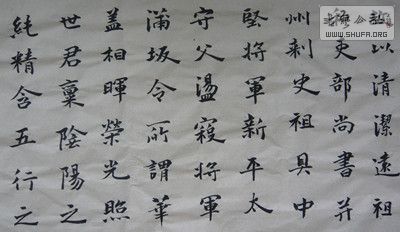 以清潔遠祖
吏部尚書并
州刺史祖具中
堅將軍新平太
守父盪寇將軍
蒲坂令所謂華
蓋相暉榮光照
世君稟陰陽之
純精含五行之
WWW.SHUFA.ORG